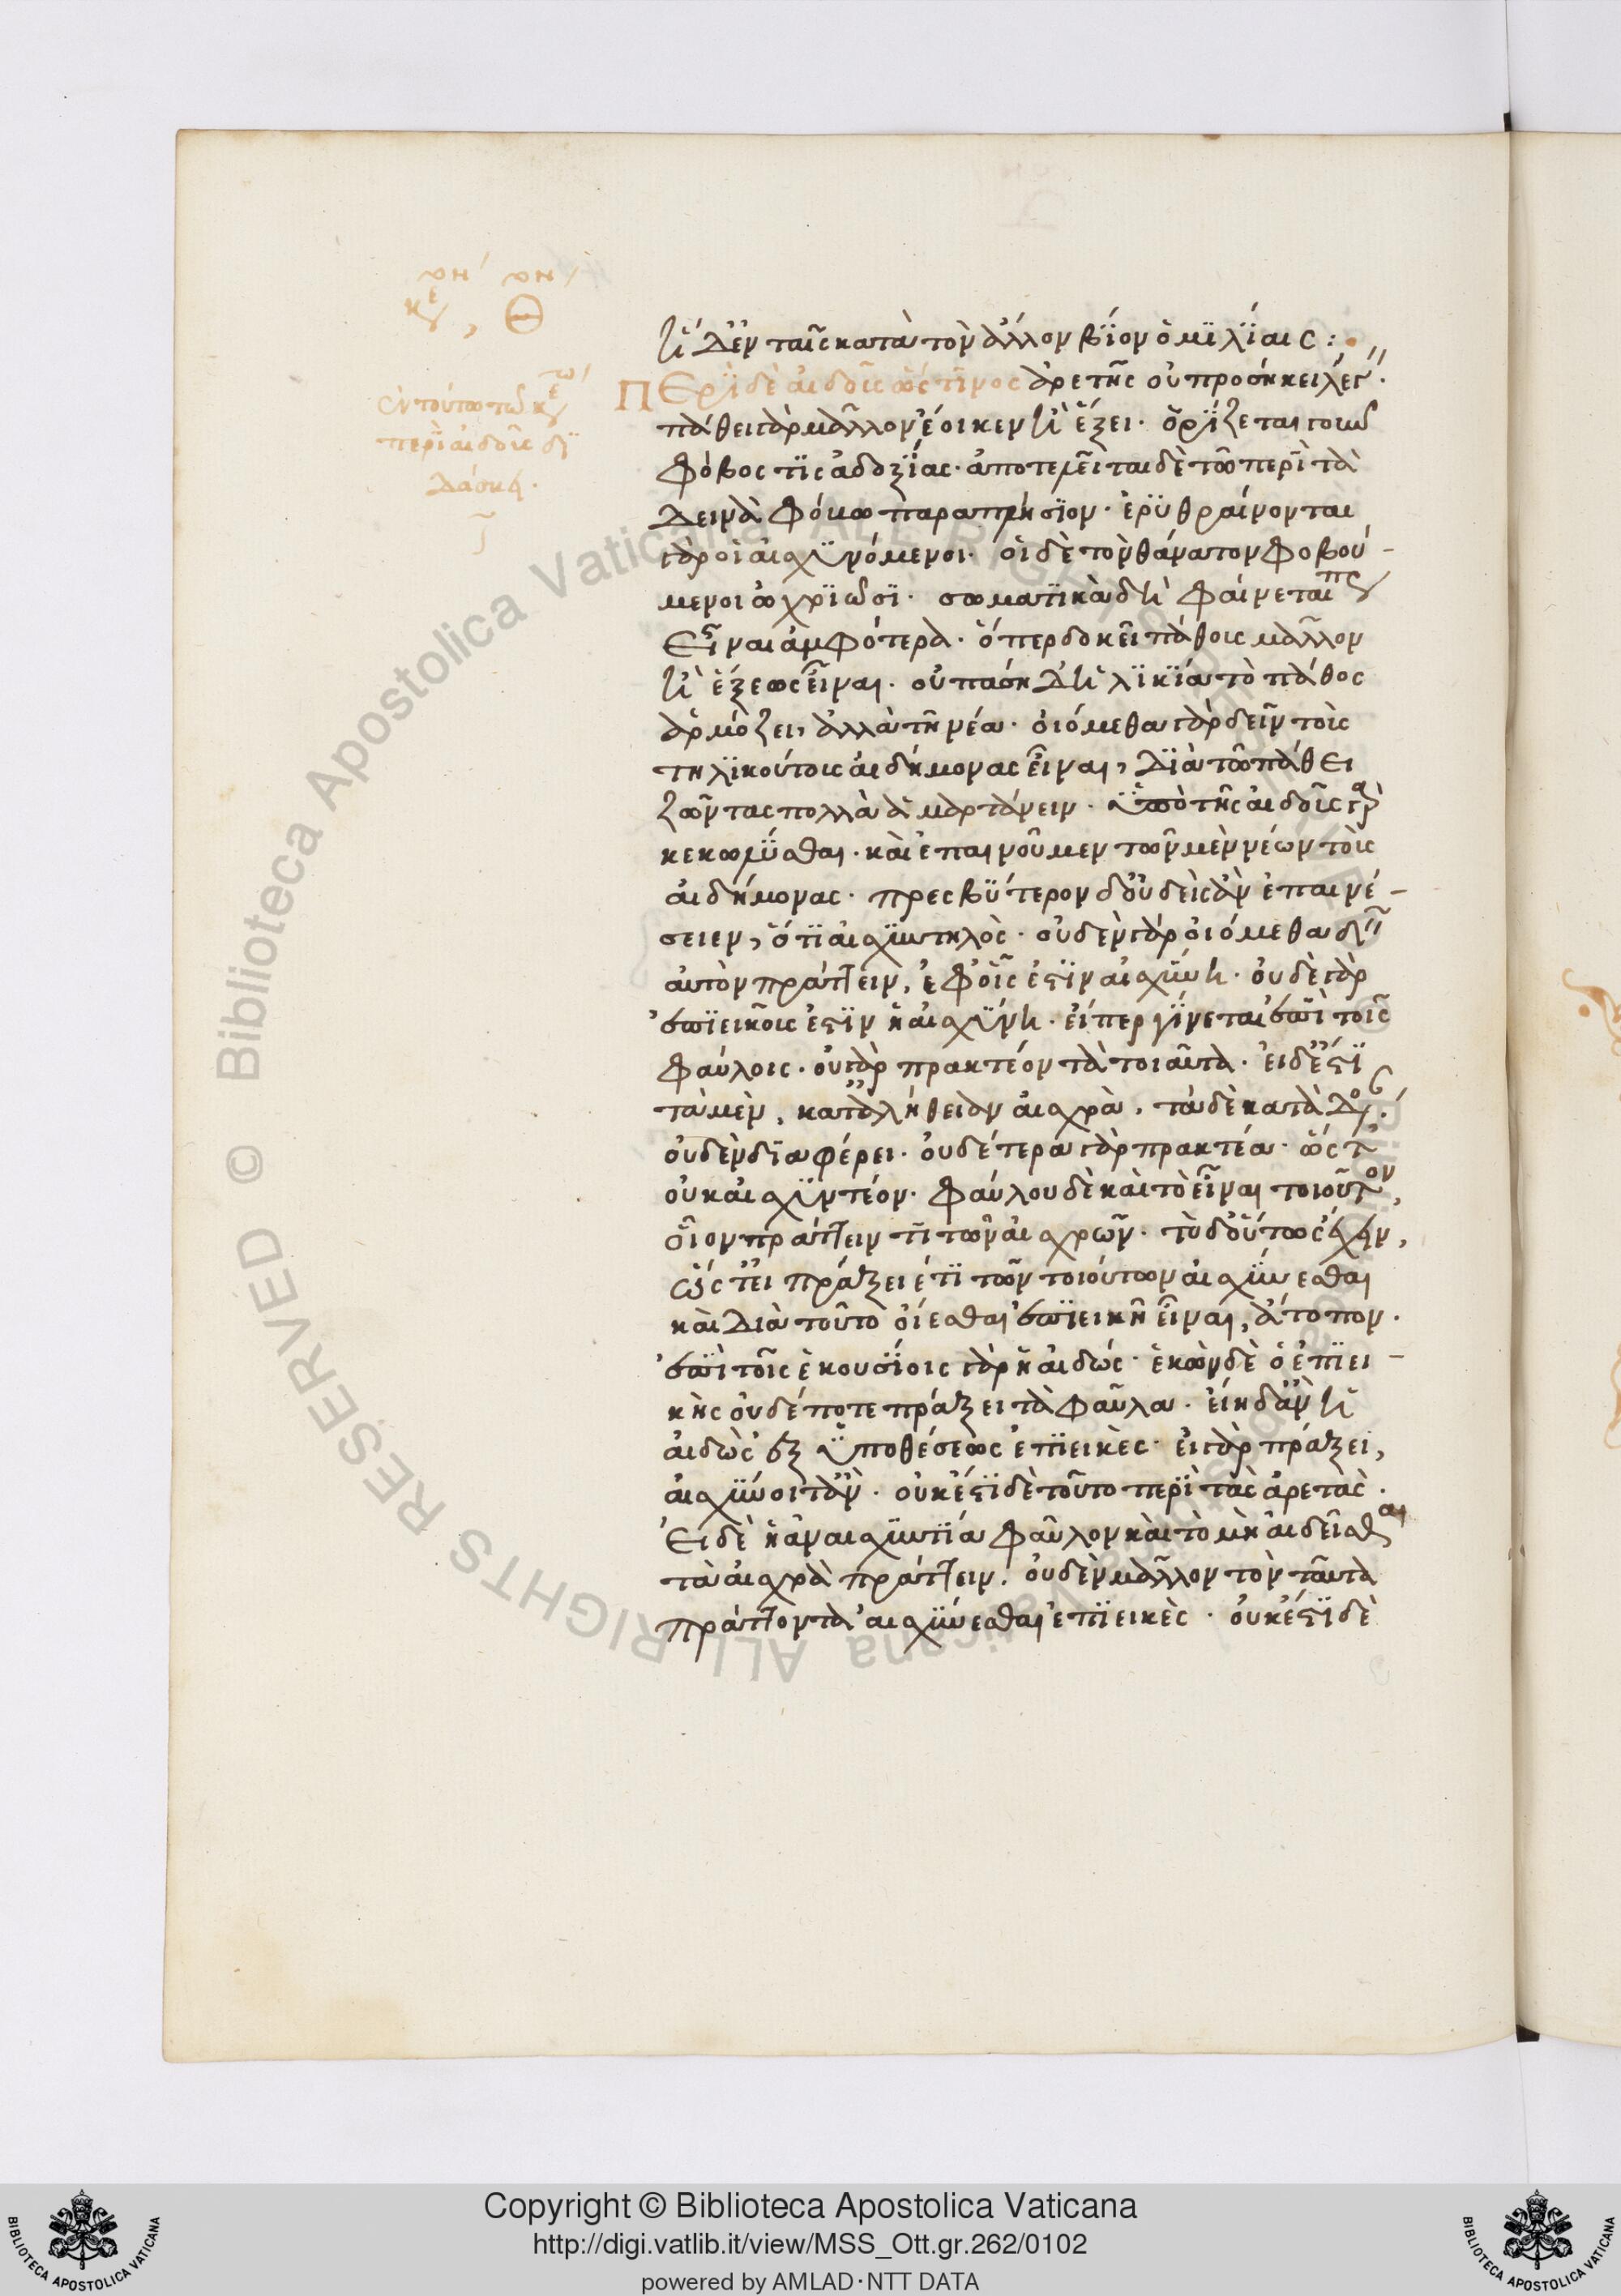 ἡ δ' ἐν ταῖς κατὰ τὸν ἄλλον βίον ὁμιλίαις :
Περὶ δὲ αἰδοῦς ὥς τινος ἀρετῆς οὐ προσήκει λέγειν·
πάθει γὰρ μᾶλλον ἔοικεν ἢ ἕξει· ὁρίζεται γοῦν
φόβος τις ἀδοξίας· ἀποτελεῖται δὲ τῶ περὶ τὰ
δεινὰ φόβω παραπλήσιον· ἐρυθραίνονται
γὰρ οἱ αἰσχυνόμενοι· οἱ δὲ τὸν θάνατον φοβού-
μενοι ὠχριῶσι· σωματικὰ δὴ φαίνεταί πως
εἶναι ἀμφότερα· ὅπερ δοκεῖ πάθους μᾶλλον
ἢ ἕξεως εἶναι· οὐ πάση δ' ἡλικία τὸ πάθος
ἁρμόζει, ἀλλὰ τῆ νέα· οἰόμεθα γὰρ δεῖν τοὺς
τηλικούτους αἰδήμονας εἶναι, διὰ τὸ πάθει
ζῶντας πολλὰ ἁμαρτάνειν· ὑπὸ τῆς αἰδοῦς γὰρ
κεκωλῦσθαι· καὶ ἐπαινοῦμεν τῶν μὲν νέων τοὺς
αἰδήμονας· πρεσβύτερον δ' οὐδεὶς ἂν ἐπαινέ-
σειεν, ὅτι αἰσχυντηλὸς· οὐδὲν γὰρ οἰόμεθα δεῖν
αὐτὸν πράττειν, ἐφ' οἷς ἐστὶν αἰσχύνη· οὐδὲ γὰρ
ἐπιεικοῦς ἐστὶν ἡ αἰσχύνη· εἴπερ γίνεται ἐπὶ τοῖς
φαύλοις· οὐ γὰρ πρακτέον τὰ τοιαῦτα· εἰ δ' ἐστὶ
τὰ μὲν, κατ' ἀλήθειαν αἰσχρὰ, τὰ δὲ κατὰ δόξαν·
οὐδὲν διαφέρει· οὐδέτερα γὰρ πρακτέα· ὥστ'
οὐκ αἰσχυντέον· φαύλου δὲ καὶ τὸ εἶναι τοιοῦτον,
οἷον πράττειν τι τῶν αἰσχρῶν· τὸ δ' οὕτως ἔχειν,
ὥστ' εἰ πράξειέ τι τῶν τοιούτων αἰσχύνεσθαι
καὶ διὰ τοῦτο οἴεσθαι ἐπιεικῆ εἶναι, ἄτοπον·
ἐπὶ τοῖς ἑκουσίοις γὰρ ἡ αἰδώς· ἑκὼν δὲ ὁ ἐπιει-
κὴς οὐδέποτε πράξει τὰ φαῦλα· εἴη δ' ἂν ἡ
αἰδὼς ἐξ ὑποθέσεως ἐπιεικὲς· εἰ γὰρ πράξει,
αἰσχύνοιτ' ἂν· οὐκ ἔστι δὲ τοῦτο περὶ τὰς ἀρετὰς·
Εἰ δὲ ἡ ἀναισχυντία φαῦλον καὶ τὸ μὴ αἰδεῖσθαι
τὰ αἰσχρὰ πράττειν· οὐδὲν μᾶλλον τὸν ταῦτα
πράττοντα αἰσχύνεσθαι ἐπιεικὲς· οὐκ ἔστι δὲ
ἐν τούτω τῶ κεφαλαίω
περὶ αἰδοῦς δι
δάσκει·
Copyright © Biblioteca Apostolica Vaticana
http://digi.vatlib.it/view/MSS_Ott.gr.262/0102
powered by AMLAD·NTT DATA
BIBLIOTECA APOSTOLICA VATICANA
BIBLIOTECA APOSTOLICA VATICANA
© Biblioteca Apostolica Vaticana ALL RIGHTS RESERVED